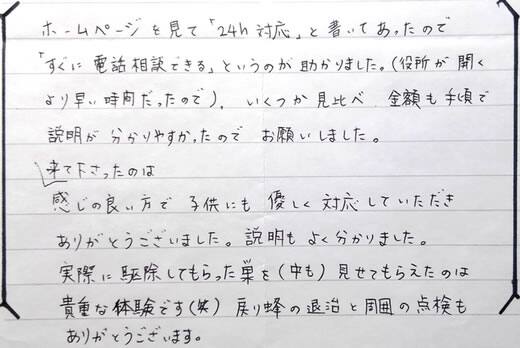 ホームページを見て「24h対応」と書いてあったので
「すぐに電話相談できる」というのが助かりました。(役所が開く
より早い時間だったので)、いくつか見比べ 金額も手頃で
説明が分かりやすかったのでお願いしました。
来て下さったのは
感じの良い方で子供にも優しく対応していただき
ありがとうございました。説明もよく分かりました。
実際に駆除してもらった巣を(中も)見せてもらえたのは
貴重な体験です(笑)戻り蜂の退治と周囲の点検も
ありがとうございます。